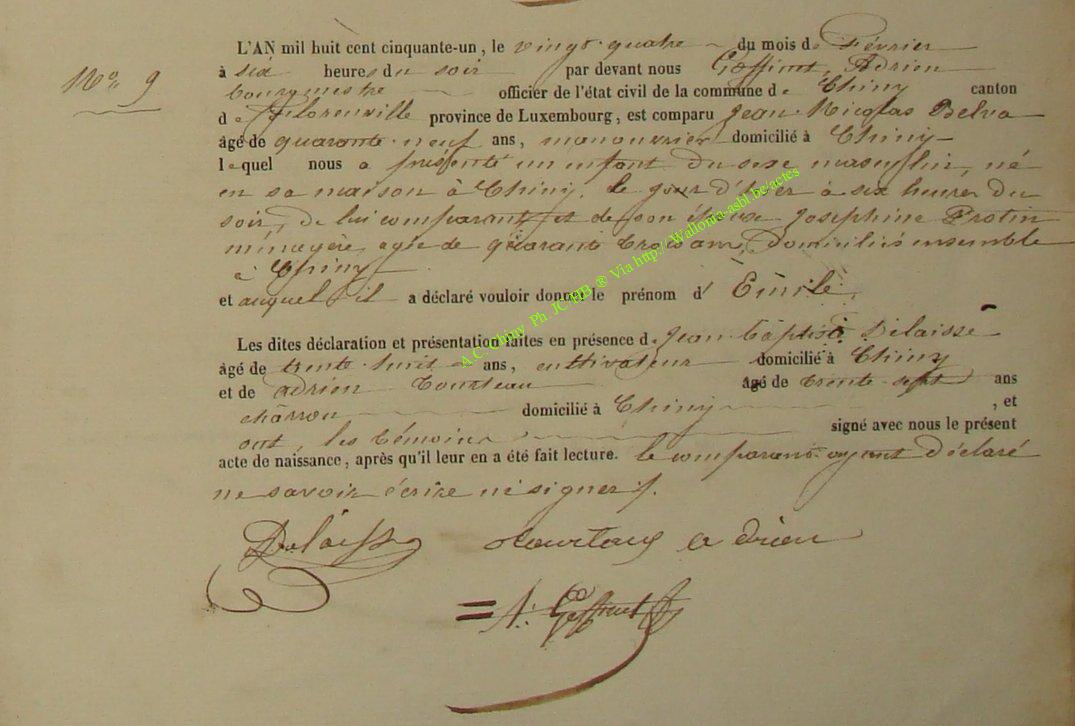 L'AN mil huit cent cinquante-un, le vingt-quatre du mois de Février
N° 9
à six heures du soir par devant nous Goffinet, Adrien
bourgmestre officier de l'état civil de la commune de Chiny canton
de Florenville province de Luxembourg, est comparu Jean Nicolas Delva
âgé de quarante neuf ans, manouvrier domicilié à Chiny
lequel nous a présenté un enfant du sexe masculin, né
en sa maison à Chiny, le jour d'hier à six heures du
soir, de lui comparant et de son épouse Josephine Protin
ménagère, agée de quarante trois ans, domiciliés ensemble
à Chiny
et auquel il a déclaré vouloir donner le prénom d' Emile
Les dites déclaration et présentation faites en présence de Jean Baptiste Délaisse
âgé de trente huit ans, cultivateur domicilié à Chiny
et de adrien Courteau âgé de trente sept ans
charron domicilié à Chiny, et
ont, les témoins signé avec nous le présent
acte de naissance, après qu'il leur en a été fait lecture. le comparant ayant déclaré
ne savoir écrire ni signer /.
Delaisse adrien
A. Goffinet
A.C. Chiny Ph. JC HB ® Via http://Wallonia-asbl.be/actes